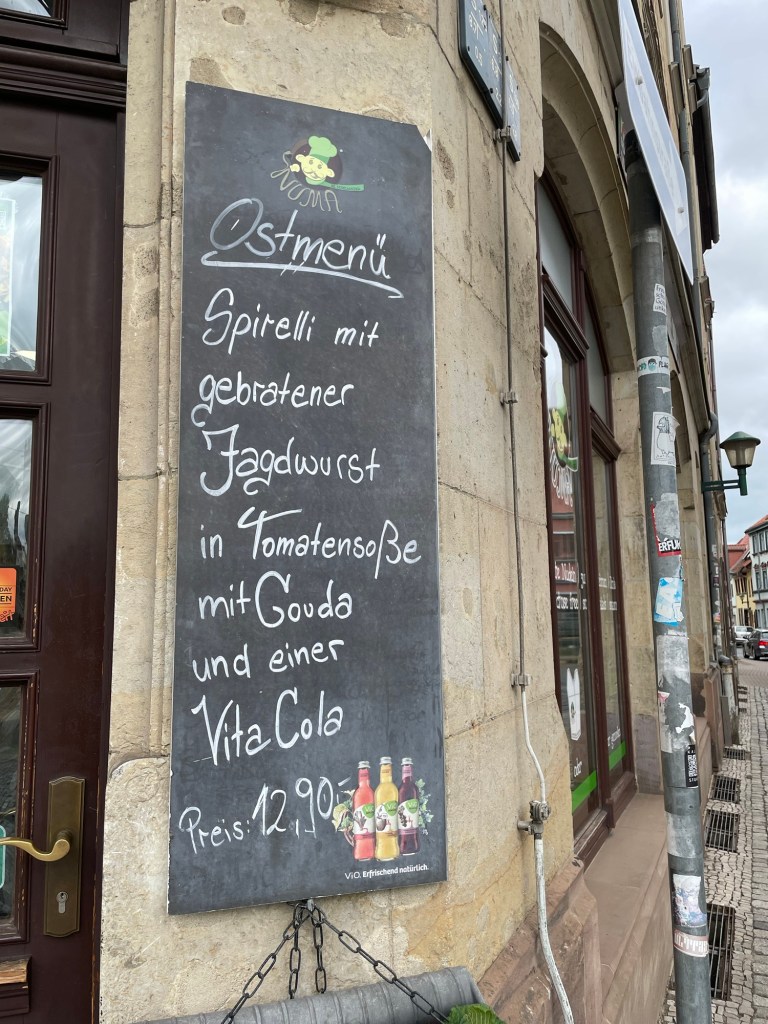 NUMA
Ostmenü
Spirelli mit
gebratener
Jagdwurst
in Tomatensoße
mit Gouda
und einer
Vita Cola
Preis: 12,90,-
ViO. Erfrischend natürlich.
ERFUR